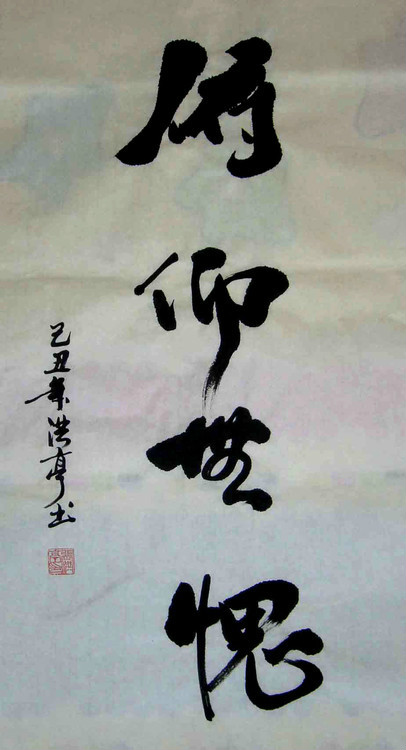 俯仰無愧
己丑年洪亭书